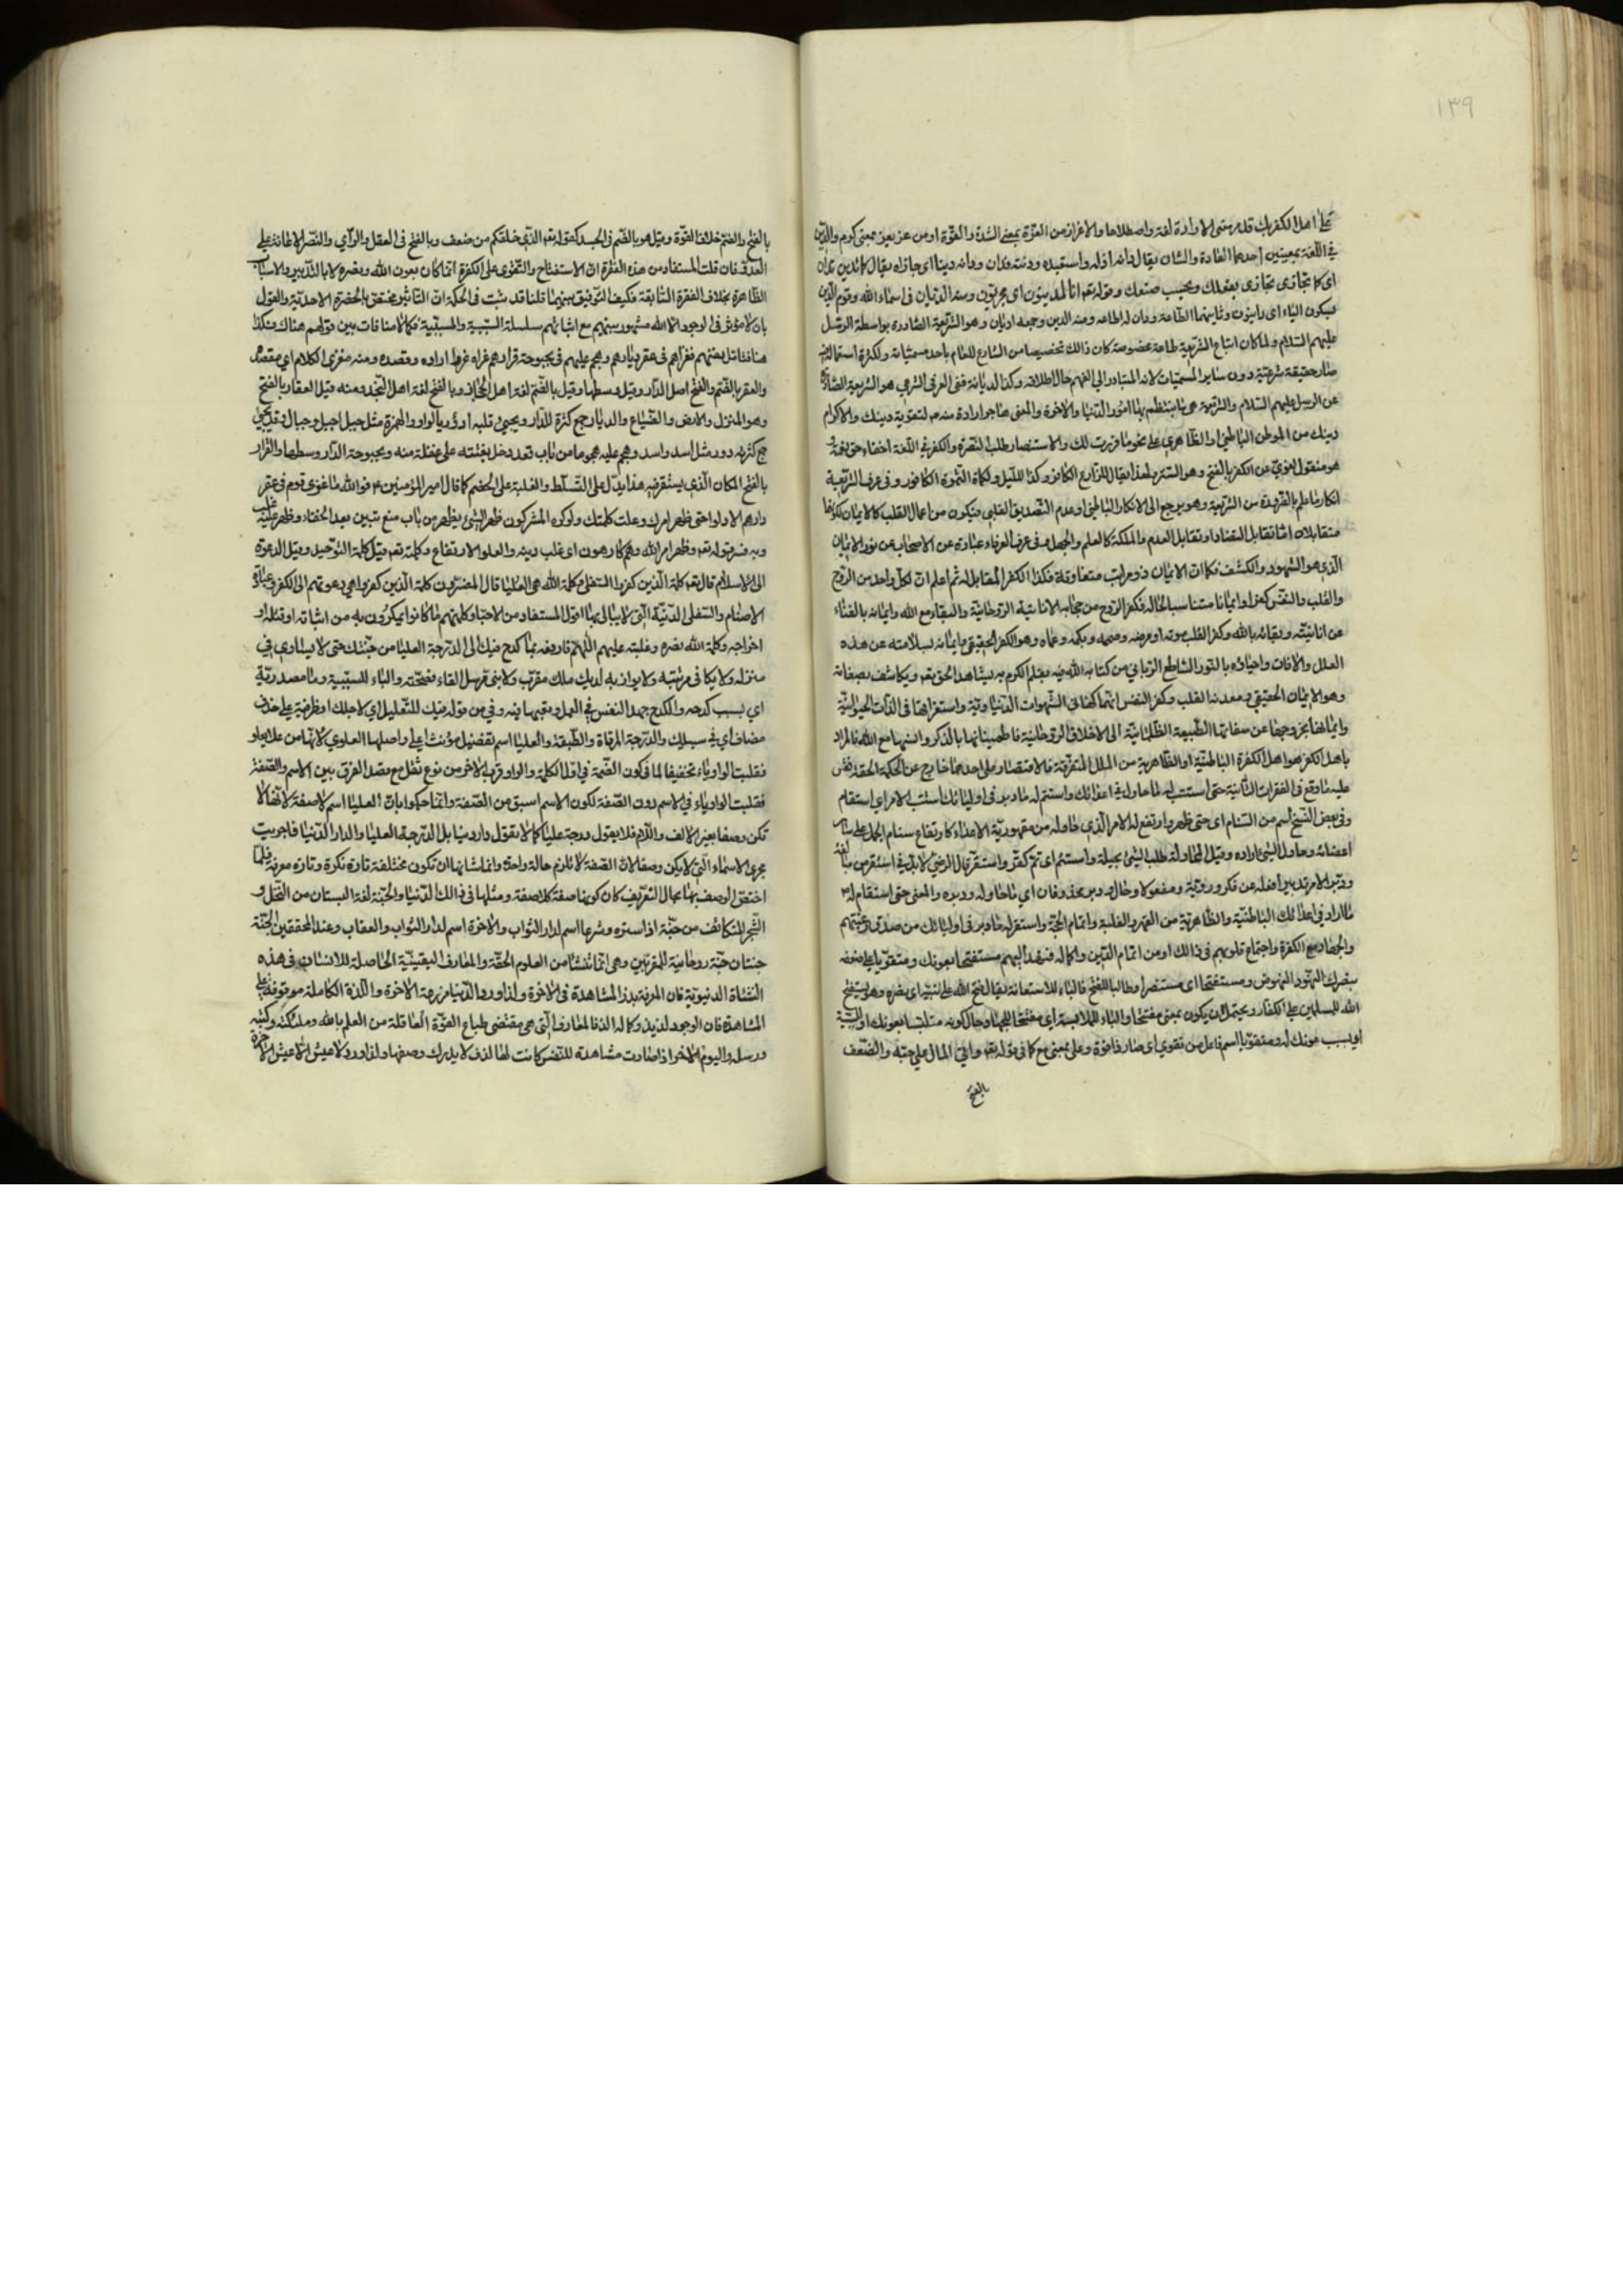 ١٣٩
على اهل الكفر بك قد مر معنى الارادة لغة واصطلاحا والاعزاز من العزة بمعنى الشدة والقوة او من عز يعز بمعنى كرم والدين
في اللغة بمعنيين احدهما العادة والشان يقال دانه اذله واستعبده ودنته فدان ودانه دينا اى جازاه يقال كما تدين تدان
اى كما تجازى تجازى بفعلك وبحسب صنعك وقوله تعم انا لمدينون اى مجزيون ومنه الديان فى اسماء الله وقوم الدين
بسكون الياء اى داينون وثانيهما الطاعة ودان له اطاعه ومنه الدين وجمعه اديان وهو الشريعة الصادرة بواسطة الرسل
عليهم السلام ولما كان اتباع الشريعة طاعة مخصوصة كان ذالك تخصيصا من الشارع للعام باحد مسمياته ولكثرة استعماله فيه
صار حقيقة شرعية دون ساير المسميات لانه المتبادر الى الفهم حال اطلاقه وكذا الديانة ففى العرف الشرعى هو الشريعة الصادرة
عن الرسل عليهم السلام والشريعة هى ما ينتظم بها امور الدنيا والاخرة والمعنى هاجر ارادة منه لتقوية دينك والاكرام
دينك من الموطن الباطنى او الظاهرى على نحو ما قررت لك والاستنصار طلب النصرة والكفر فى اللغة اخفاء حق نعمة
هو منقول لغوى عن الكفر بالفتح وهو الستر ولهذا يقال للزارع الكافر وكذا لليل ولكمام الثمرة الكافور وفى عرف الشريعة
انكار ما علم بالضرورة من الشريعة وهو يرجع الى الانكار الباطنى وعدم التصديق القلبى فيكون من اعمال القلب كالايمان لكونهما
متقابلان اما تقابل التضاد او تقابل العدم والملكة كالعلم والجهل وفى عرف العرفاء عبارة عن الاحتجاب عن نور الايمان
الذى هو الشهود والكشف فكما ان الايمان ذو مراتب متفاوتة فكذا الكفر المقابل له ثم اعلم ان لكل واحد من الروح
والقلب والنفس كفرا وايمانا متناسبا لحاله فكفر الروح من حجابه الانانية الروحانية والبقاء مع الله وايمانه بالفناء
عن انانيته وبقائه بالله وكفر القلب موته او مرضه وصممه وبكمه وعماه وهو الكفر الحقيقى وايمانه بسلامته عن هذه
العلل والافات واحياؤه بالنور الساطع الربانى من كتابة الله فيه بقلم الكرم به يشاهد الحق تعم ويكاشف بصفاته
وهو الايمان الحقيقى ومعدنه القلب وكفر النفس انهماكها فى الشهوات الدنياوية واستغراقها فى اللذات الحيوانية
وايمانها بخروجها عن صفاتها الطبيعة الظلمانية الى الاخلاق الروحانية فاطمينانها بالذكر وانسها مع الله فالمراد
باهل الكفر هو اهل الكفرة الباطنية او الظاهرية من الملل المتفرقة فالاقتصار على احدهما خارج عن الحكمة الحقة فقس
عليه ما وقع فى الفقرات الثانية حتى استتب له ما حاول فى اعدائك واستتم له ما دبر فى اوليائك استتب الامر اى استقام
وفى بعض النسخ اسم من السنام اى حتى ظهر وارتفع له الامر الذى حاوله من مقهورية الاعداء كارتفاع سنام الجمل على ساير
اعضائه وحاول الشئ اراده وقيل المحاولة طلب الشئ بحيلة واستتم اى تم كقر واستقر
ودبر الامر تدبيرا فعله عن فكر وروية ومفعولا وحاول ودبر محذوفان اى ما حاوله ودبره والمعنى حتى استقام له
ما اراد فى اعدائك الباطنية والظاهرية من القهر والغلبة واتمام الحجة واستقر له ما دبر فى اوليائك من صدق رغبتهم
والجهاد مع الكفرة واجتماع قلوبهم فى ذالك او من اتمام الدين واكماله فنهد اليهم مستفتحا بعونك ومتقويا على ضعفه
بنصرك النهود النهوض ومستفتحا اى مستنصرا وطالبا للفتح فالباء للاستعانة يقال فتح الله على نبيه اى نصره وهو يستفتح
الله للمسلمين على الكفار ويحتمل ان يكون بمعنى مفتتحا والباء للملابسة اى مفتتحا للجهاد حال كونه متلبسا بعونك او للسببية
اى بسبب عونك له ومتقويا اسم فاعل من تقوى اى صار ذا قوة وعلى بمعنى مع كما فى قوله تعم واتى المال على حبه والضعف
بالفتح
بالفتح والضم خلاف القوة وقيل هو بالضم فى الجسد كقوله تعم الذى خلقكم من ضعف وبالفتح فى العقل والراى والنصر الاعانة على
العدو فان قلت المستفاد من هذه الفقرة ان الاستفتاح والتقوى على الكفرة انما كان بعون الله ونصره لا بالتدبير والاسباب
الظاهرة بخلاف الفقرة السابقة فكيف التوفيق بينهما قلنا قد ثبت فى الحكمة ان التاثير مختص بالحضرة الاحدية والقول
بان لا مؤثر فى الوجود الا الله مشهور بينهم مع اثباتهم سلسلة السببية والمسببية فكما لا منافات بين قولهم هناك فكذا
هنا فتامل فغزاهم فى عقر ديارهم وهجم عليهم فى بحبوحة قرارهم غزاه غزوا اراده وقصده ومنه مغزى الكلام اى مقصده
والعقر بالضم والفتح اصل الدار وقيل وسطها وقيل بالضم لغة اهل الحجاز وبالفتح لغة اهل النجد ومنه قيل العقار بالفتح
وهو المنزل والارض والضياع والديار جمع كثرة للدار ويجئ قلبه ادؤر بالواو والهمزة مثل جبل اجبل وجبال وقد يجئ
جمع كثرته دور مثل اسد واسد وهجم عليه هجوما من باب قعد دخل بغتة على غفلة منه وبحبوحة الدار وسطها والقرار
بالفتح المكان الذى يستقر فيه هذا يدل على التسلط والغلبة على الخصم كما قال امير المؤمنين ع فوالله ما غزى قوم فى عقر
دارهم الا ذلوا حتى ظهر امرك وعلت كلمتك ولو كره المشركون ظهر الشئ يظهر من باب منع تبين بعد الخفاء وظهر عليه غلب
وبه فسر قوله تعم وظهر امر الله وهم كارهون اى غلب دينه والعلو الارتفاع وكلمته تعم قيل كلمة التوحيد وقيل الدعوة
الى الاسلام قال تعم كلمة الذين كفروا السفلى وكلمة الله هى العليا قال المفسرون كلمة الذين كفروا هى دعوتهم الى الكفر وعبادة
الاصنام والسفلى الدنية التى لا يبالى بها اقول المستفاد من الاخبار كلمتهم ما كانوا يمكرون به من اثباته او قتله او
اخراجه وكلمة الله نصره وغلبته عليهم اللهم فارفعه بما كدح فيك الى الدرجة العليا من جنتك حتى لا يساوى فى
منزلة ولا يكافى مرتبة ولا يوازيه لديك ملك مقرب ولا نبى مرسل الفاء فصيحة والباء للسببية وما مصدرية
اى بسبب كدحه والكدح جهد النفس فى العمل وتعبها فيه وفى من قوله فيك للتعليل اى لاجلك او ظرفية على حذف
مضاف اى فى سبيلك والدرجة المرقاة والطبقة والعليا اسم تفضيل مؤنث اعلى واصلها العلوى لانها من علا يعلو
فقلبت الواو ياء تخفيفا لما فى كون الضمة فى اول الكلمة والواو قرب الاخر من نوع ثقل مع قصد الفرق بين الاسم والصفة
فقلبت الواو ياء فى الاسم دون الصفة لكون الاسم اسبق من الصفة وانما حكموا بان العليا اسم لا صفة لانها لا
تكن وصفا بغير الالف واللام فلا يقول درجة عليا كما لا تقول دار دنيا بل الدرجة العليا والدار الدنيا فاجريت
مجرى الاسماء التى لا يكن وصفا لان الصفة لا تلزم حالة واحدة وانما شانها ان تكون مختلفة تارة نكرة وتارة معرفة فلما
اختص الوصف بهما بحال التعريف كان كونها صفة كلا صفة ومثلها فى ذالك الدنيا والجنة لغة البستان من النخل و
الشجر المتكاثف من جنه اذا ستره وشرعا اسم لدار الثواب والاخرة اسم لدار الثواب والعقاب وعند المحققين الجنة
جنتان جنة روحانية للمقربين وهى انما تنشا من العلوم الحقة والمعارف اليقينية الحاصلة للانسان فى هذه
النشاة الدنيوية فان المعرفة بذر المشاهدة فى الاخرة ولذا ورد الدنيا مزرعة الاخرة واللذة الكاملة موقوفة على
المشاهدة فان الوجود لذيذ وكماله الذ فالمعارف التى هى مقتضى طباع القوة العاقلة من العلم بالله وملئكته وكتبه
ورسله واليوم الاخر اذا صارت مشاهدة للنفس كانت لها لذة لا يدرك وصفها ولذا ورد لا عيش الا عيش الاخرة